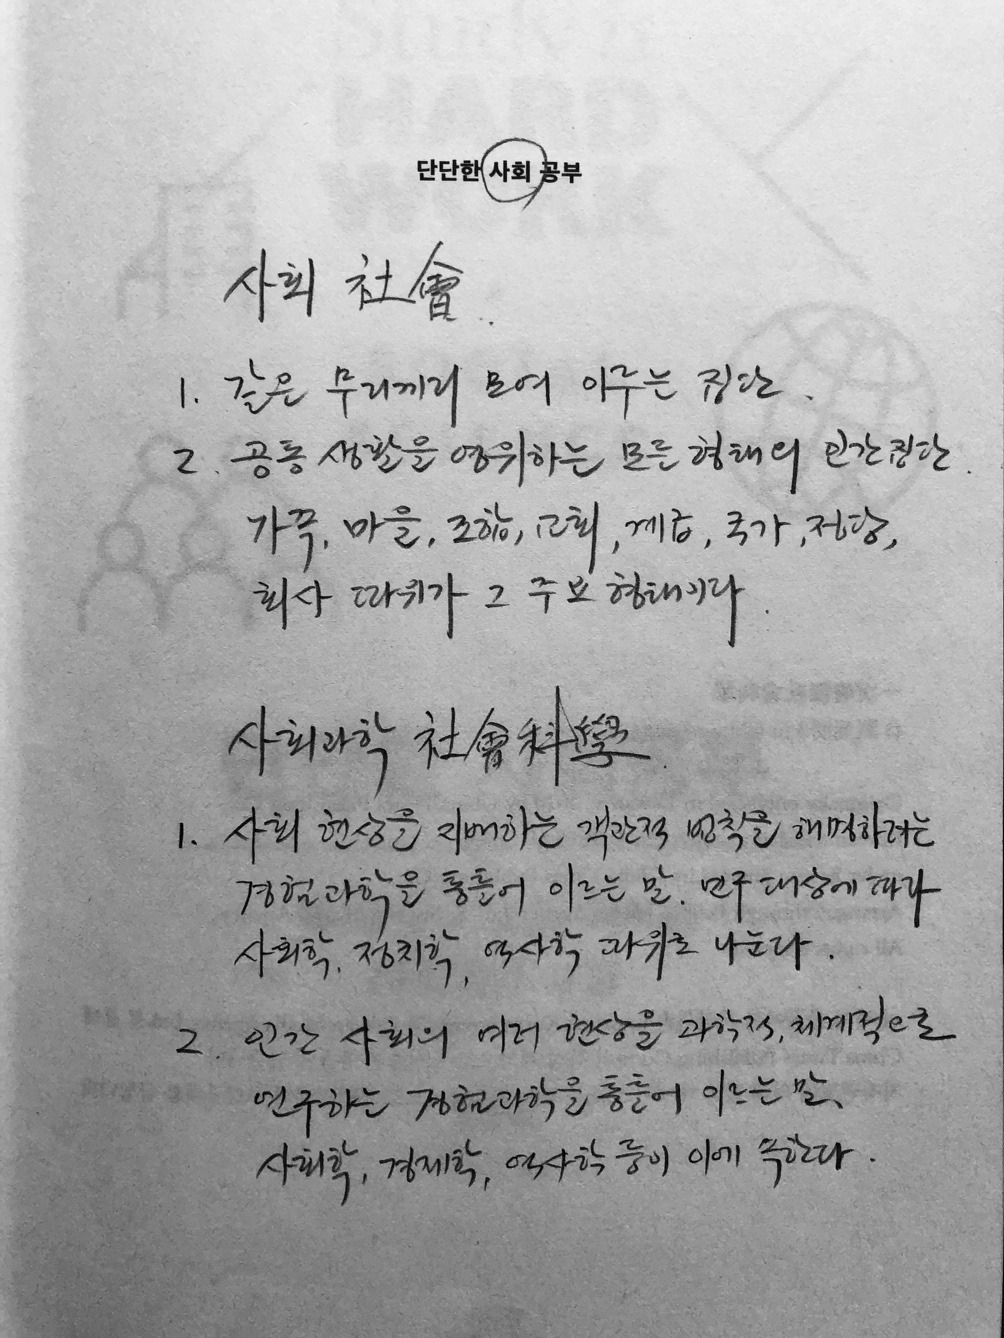 단단한 사회 공부
사회 社會
1. 같은 무리끼리 모여 이루는 집단.
2. 공동 생활을 영위하는 모든 형태의 인간집단.
가족, 마을, 조합, 교회, 계급, 국가, 정당,
회사 따위가 그 주요 형태이다.
사회과학 社會科學
1. 사회 현상을 지배하는 객관적 법칙을 해명하려는
경험과학을 통틀어 이르는 말. 연구 대상에 따라
사회학, 정치학, 역사학 따위로 나눈다.
2. 인간 사회의 여러 현상을 과학적, 체계적으로
연구하는 경험과학을 통틀어 이르는 말,
사회학, 경제학, 역사학 등이 이에 속한다.